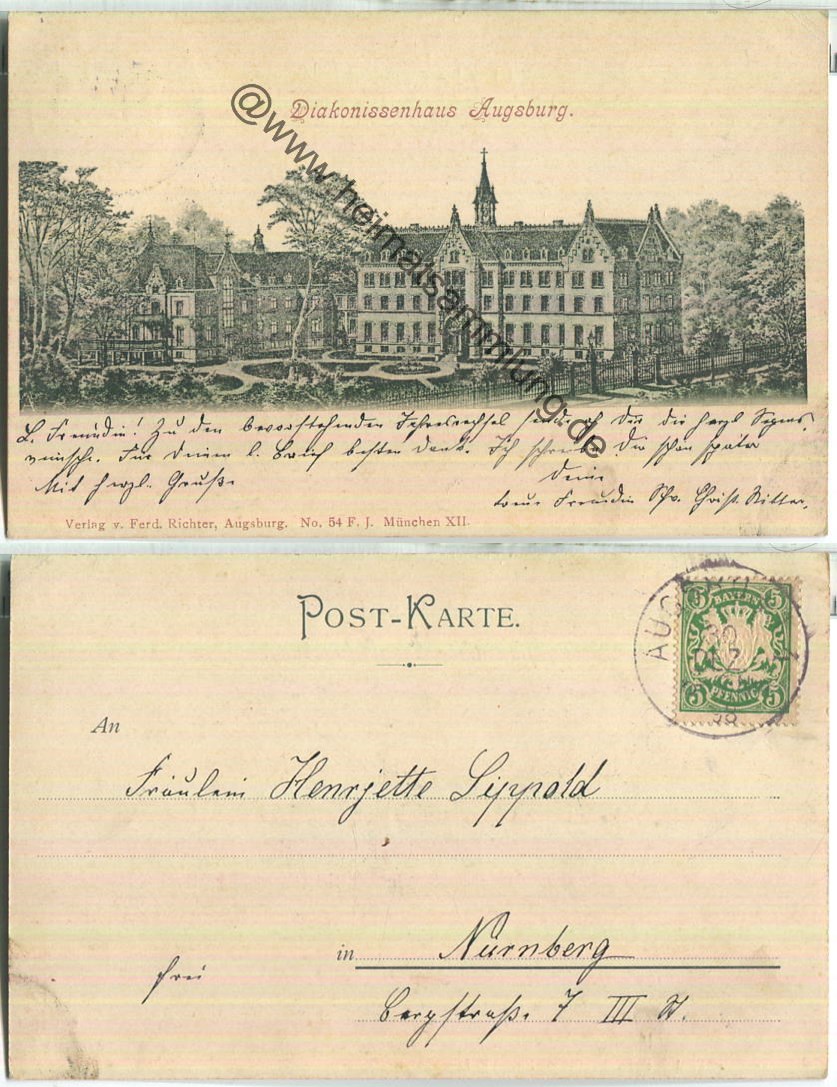 Diakonissenhaus Augsburg.
@www.heimatsammlung.de
L. Freundin! Zu den bevorstehenden Jahreswechsel sende ich Dir die herzl. Segens
wünsche. Für Deinen l. Brief besten Dank. Ich schreibe Dir schon später
Mit herzl. Gruße
Deine
treue Freundin Christ. Ritter.
Verlag v. Ferd. Richter, Augsburg. No. 54 F. J. München XII.
POST-KARTE.
AUGSBURG
30
DEZ
98
5 BAYERN 5
5 PFENNIG 5
An
Fräulein Henrjette Lippold
in Nürnberg
frei
Bergstraße 7 III St.